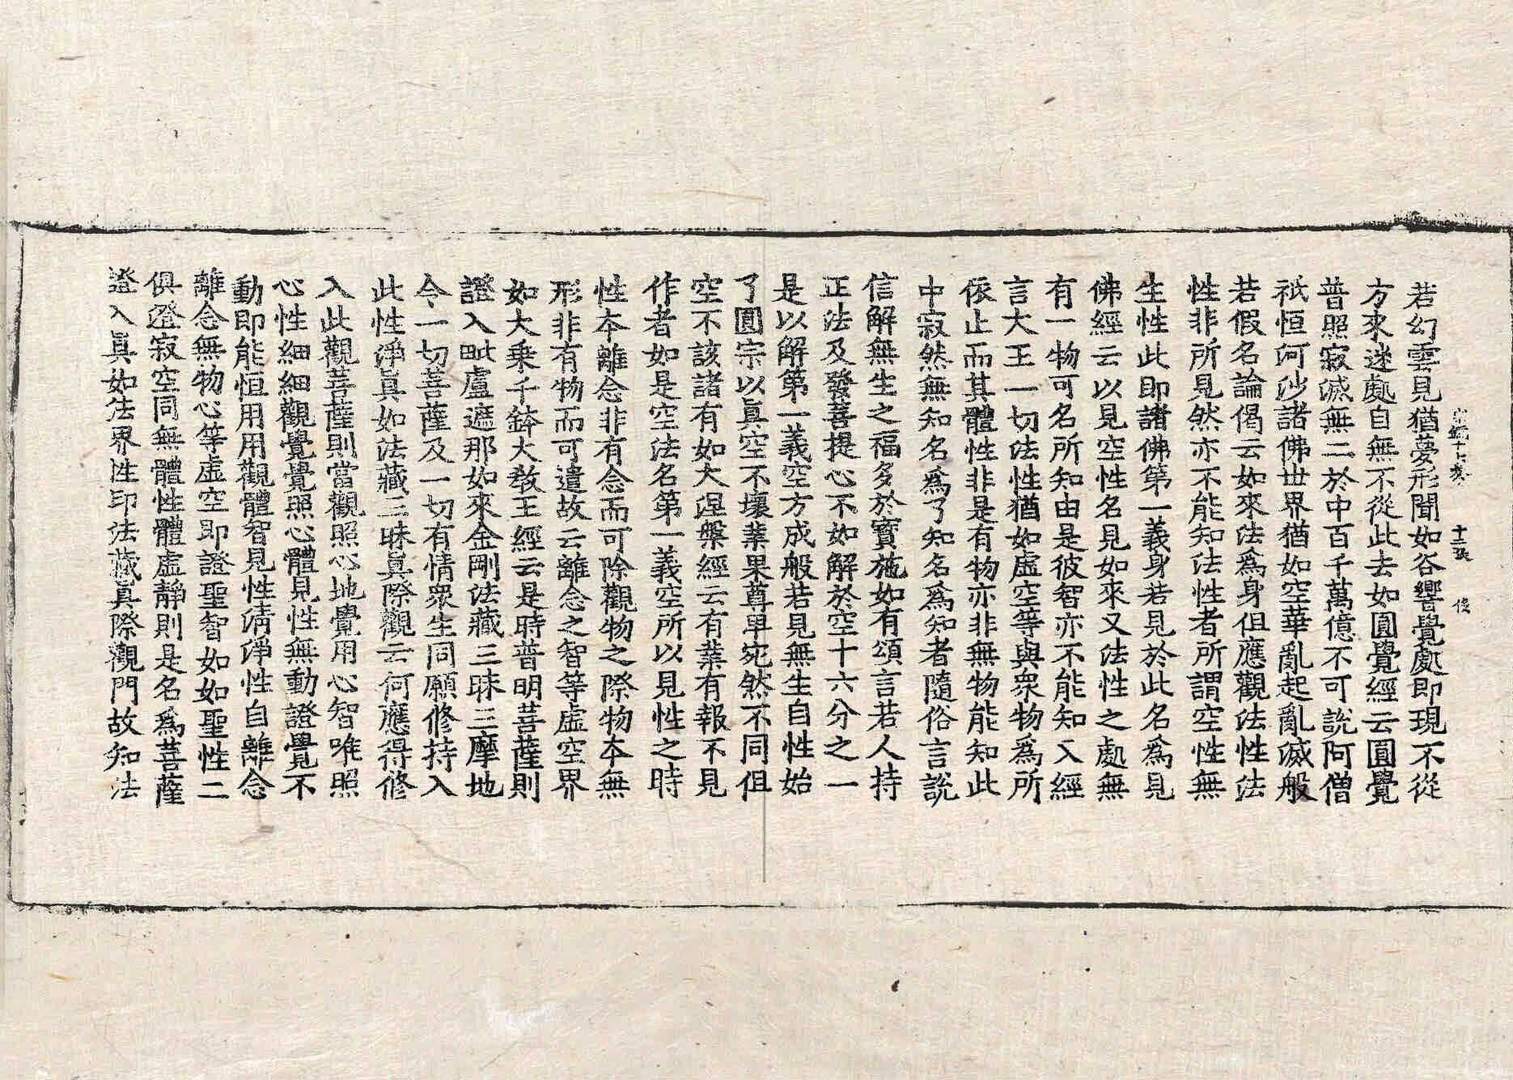 宗鏡十六卷 十三張 俊
若幻雲見猶夢形聞如谷響覺處即現不從
方來迷處自無不從此去如圓覺經云圓覺
普照寂滅無二於中百千萬億不可說阿僧
祇恒河沙諸佛世界猶如空華亂起亂滅般
若假名論偈云如來法爲身但應觀法性法
性非所見然亦不能知法性者所謂空性無
生性此即諸佛第一義身若見於此名爲見
佛經云以見空性名見如來又法性之處無
有一物可名所知由是彼智亦不能知入經
言大王一切法性猶如虛空等與衆物爲所
依止而其體性非是有物亦非無物能知此
中寂然無知名爲了知名爲知者隨俗言說
信解無生之福多於寶施如有頌言若人持
正法及發菩提心不如解於空十六分之一
是以解第一義空方成般若見無生自性始
了圓宗以眞空不壞業果尊卑宛然不同但
空不該諸有如大涅槃經云有業有報不見
作者如是空法名第一義空所以見性之時
性本離念非有念而可除觀物之際物本無
形非有物而可遣故云離念之智等虛空界
如大乘千鉢大教王經云是時普明菩薩則
證入毗盧遮那如來金剛法藏三昧三摩地
令一切菩薩及一切有情衆生同願修持入
此性淨眞如法藏三昧眞際觀云何應得修
入此觀菩薩則當觀照心地覺用心智唯照
心性細細觀覺覺照心體見性無動證覺不
動即能恒用用觀體智見性清淨性自離念
離念無物心等虛空即證聖智如如聖性二
俱澄寂空同無體性體虛靜則是名爲菩薩
證入眞如法界性印法藏眞際觀門故知法